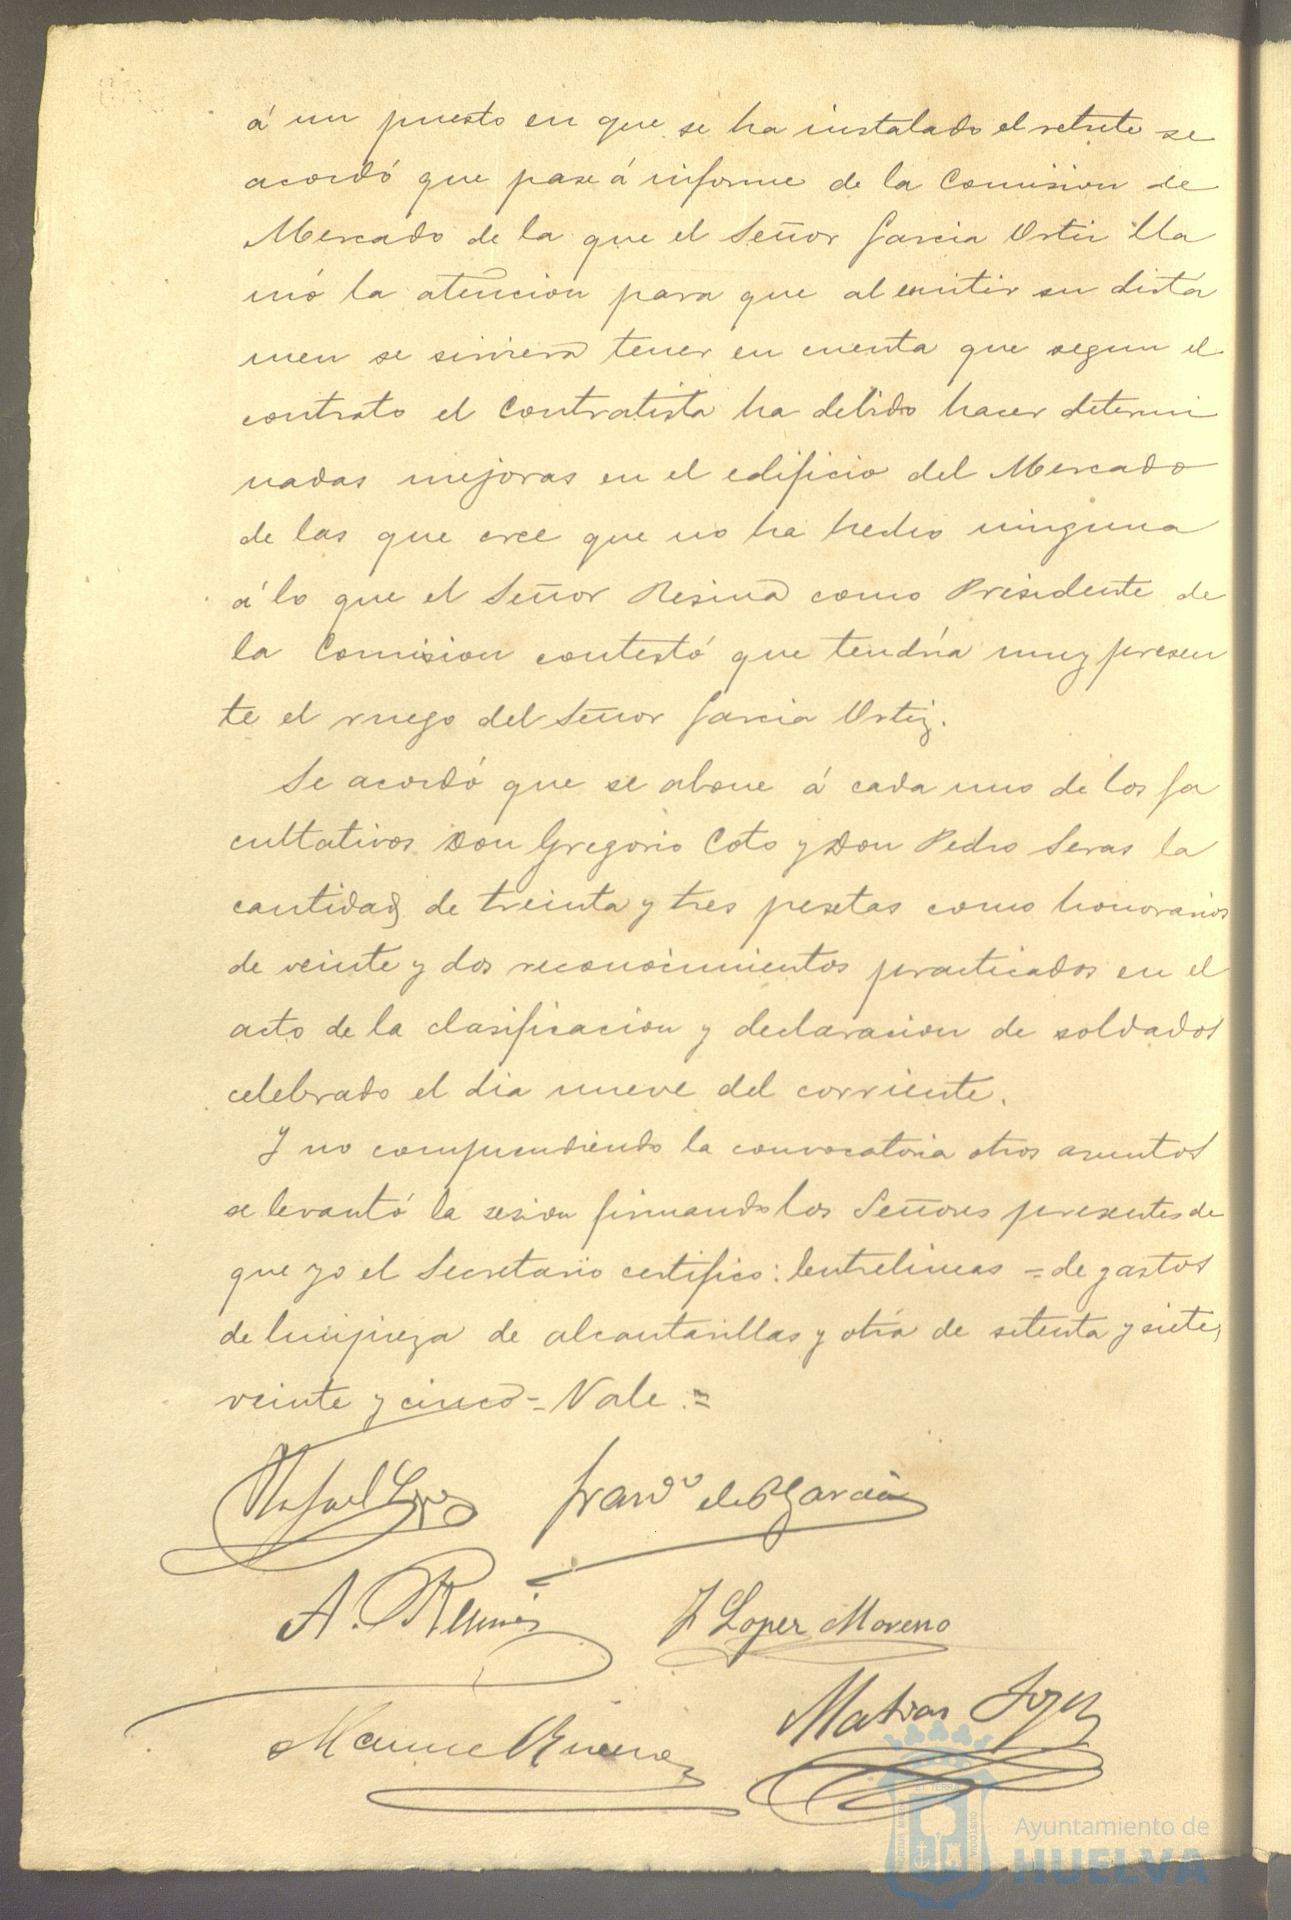 á un puesto en que se ha instalado el retrete se
acordó que pase á informe de la Comision de
Mercado de la que el Señor Garcia Ortiz lla
mó la atencion para que al emitir su dictá
men se sirviera tener en cuenta que segun el
contrato el Contratista ha debido hacer determi
nadas mejoras en el edificio del Mercado
de las que cree que no ha hecho ninguna
á lo que el Señor Resina como Presidente de
la Comision contestó que tendría muy presen
te el ruego del Señor Garcia Ortiz.
Se acordó que se abone á cada uno de los fa
cultativos Don Gregorio Coto y Don Pedro Seras la
cantidad de treinta y tres pesetas como honorarios
de veinte y dos reconocimientos practicados en el
acto de la clasificacion y declaracion de soldados
celebrado el dia nueve del corriente.
Y no comprendiendo la convocatoria otros asuntos
se levantó la sesion firmando los Señores presentes de
que yo el Secretario certifico: Entrelineas = de gastos
de limpieza de alcantarillas y otra de setenta y siete,
veinte y cinco = Vale. =
Rafael Lopez Fran^co de P Garcia
A. Resina J Lopez Moreno
Matias
Ayuntamiento de
HUELVA